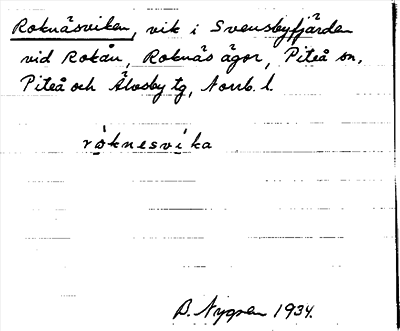 Roknäsviken, vik i Svensbyfjärden
vid Rokån, Roknäs ägor, Piteå sn,
Piteå och Älvsby tg, Norrb. l.
röknesvika
B. Nygren 1934.